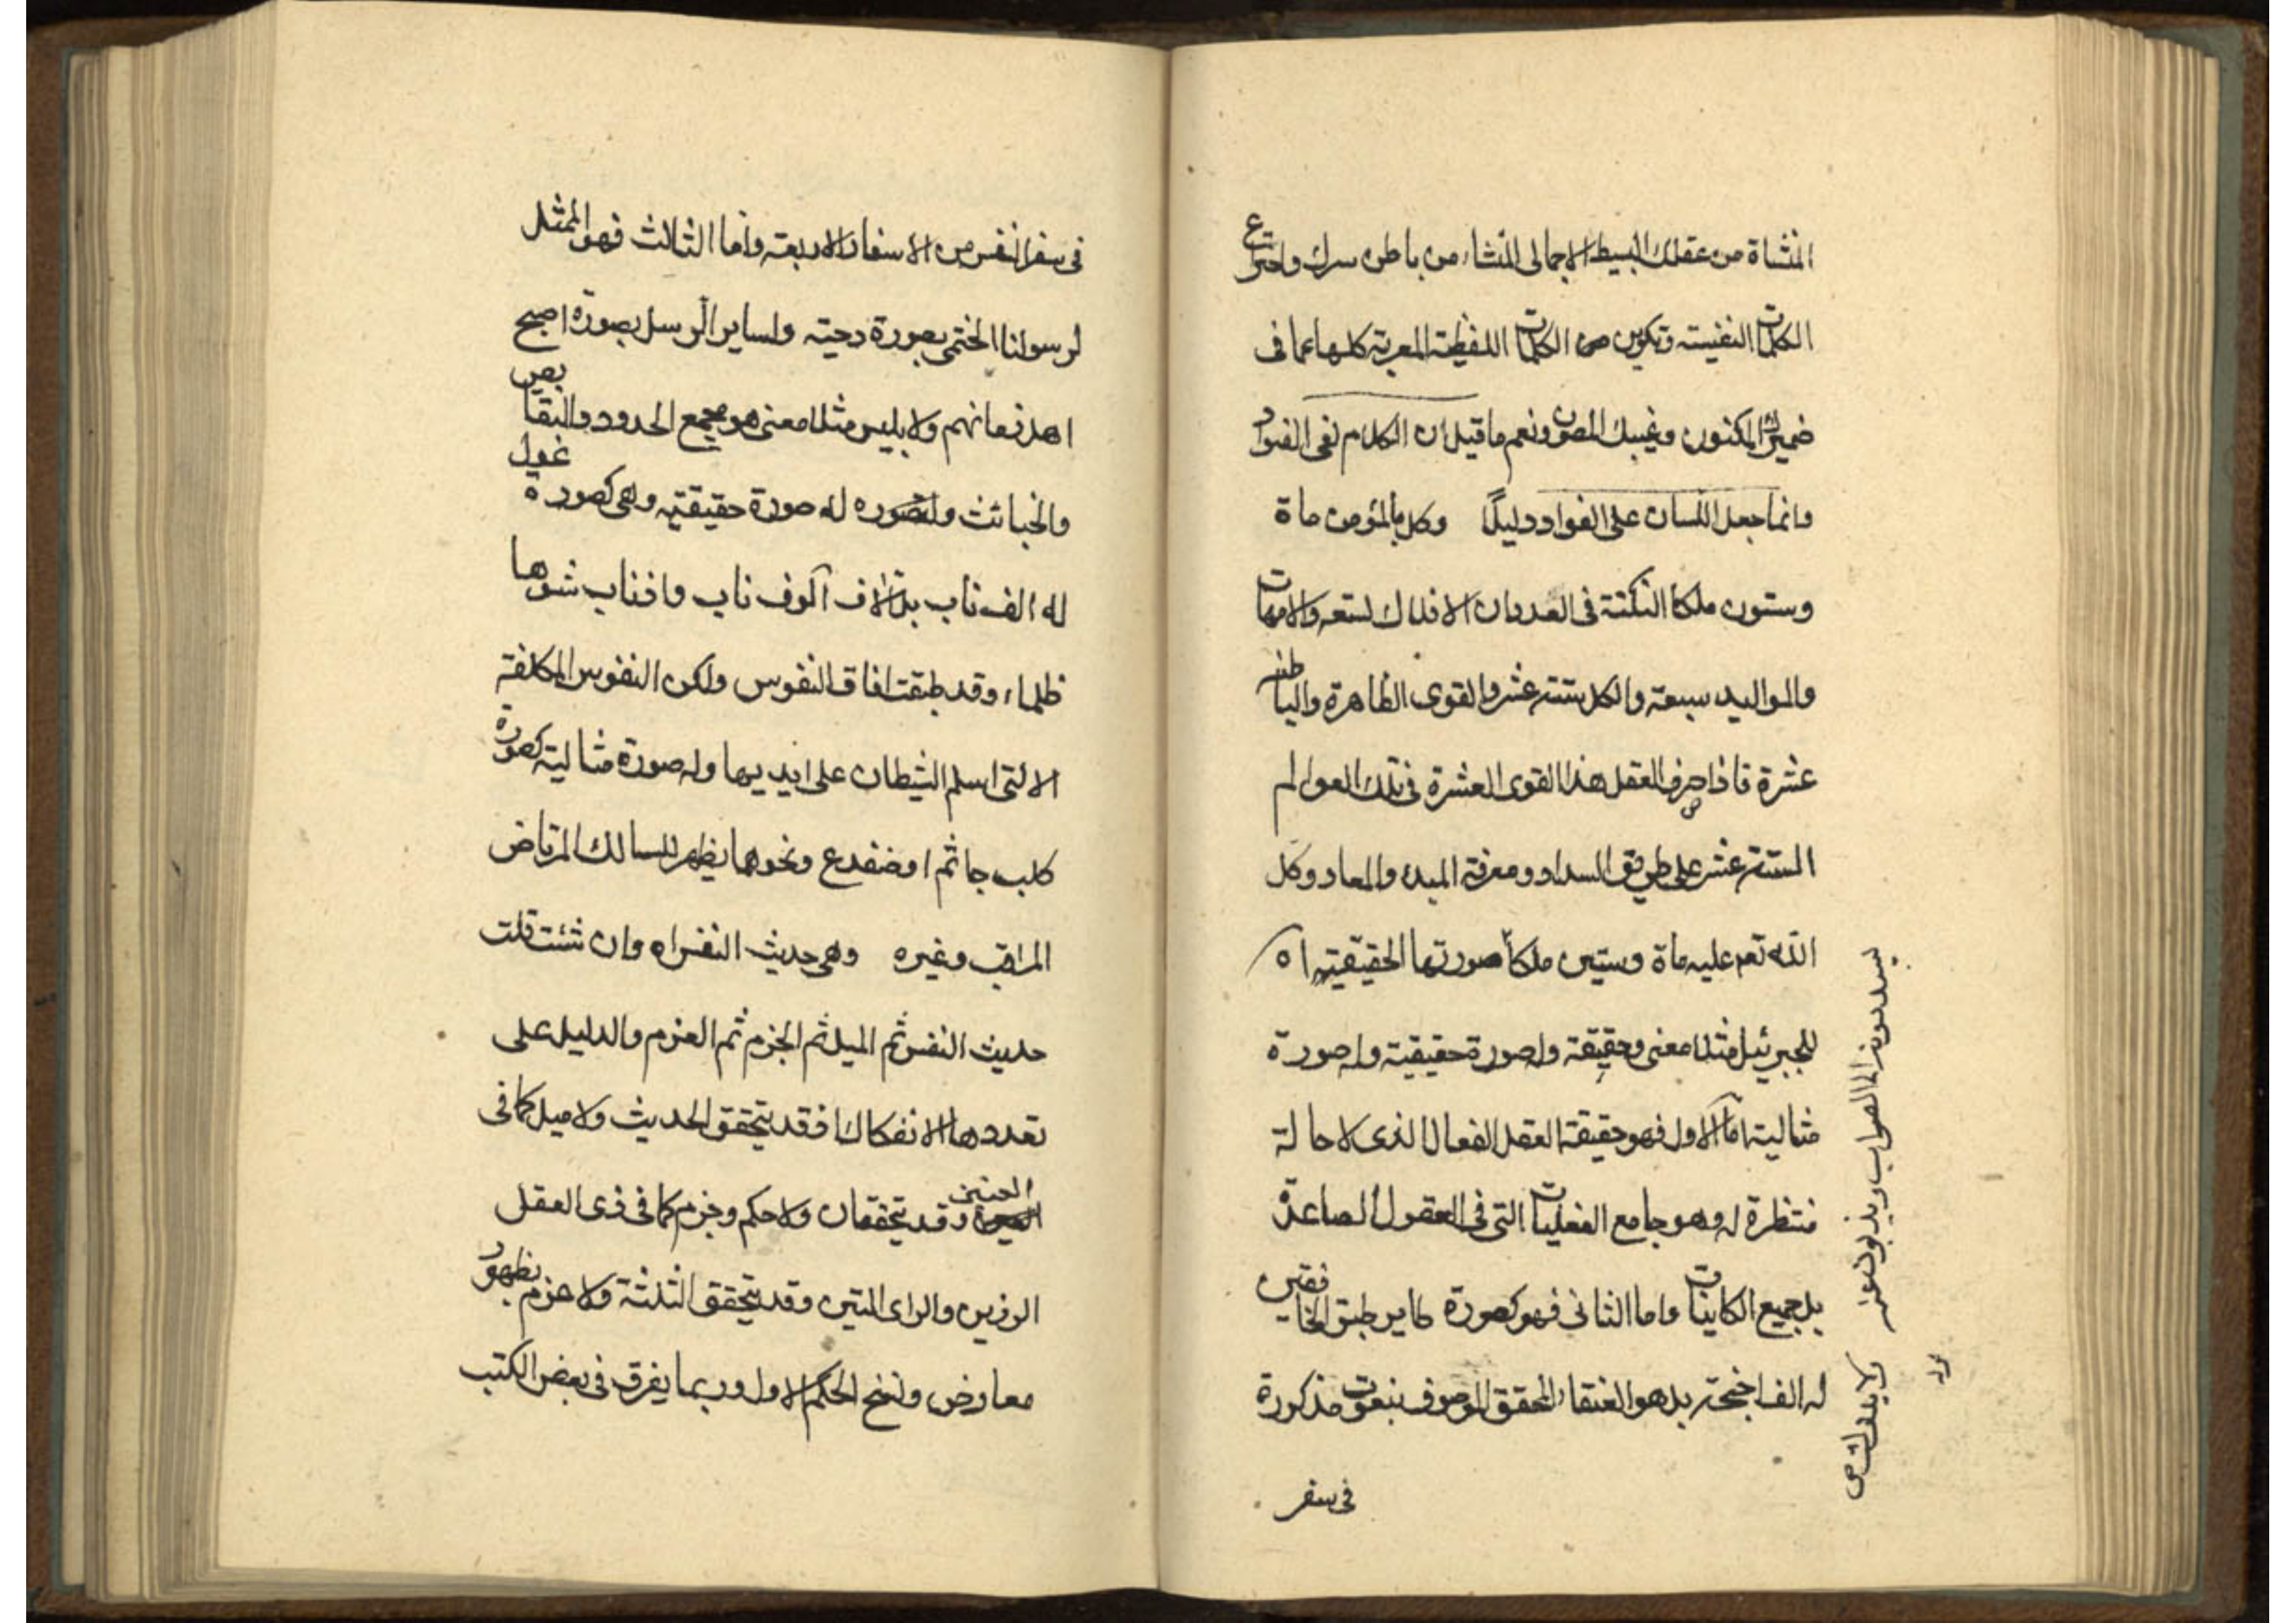 المنشاة من عقلك البسيط الاجمالى المنشاء من باطن سرك واختراع
الكلمات النفيسته وتكوين من الكلمات اللفظية المعربة كلها عما فى
ضميرك المكنون وغيبك المصون ونعم ما قيل ان الكلام لفى الفواد
وانما جعل اللسان على الفواد دليلًا وكل بالمؤمن ماة
وستون ملكا النكتة فى العدد ان الافلاك لستعه والامهات
والمواليد سبعة والكل ستة عشر والقوى الظاهرة والباطنه
عشرة فاذا صرف العقل هذا القوى العشرة فى تلك العوالم
الستة عشر على طريق السداد ومعرفة المبدء والمعاد وكل
الله تعم عليه ماة وستين ملكاً صورتها الحقيقية اه
للجبرئيل مثلا معنى وحقيقة وله صورة حقيقية وله صورة
مثالية اما الاول فهو حقيقة العقل الفعال الذى لا حالة
منتظرة له وهو جامع الفعليات التى فى العقول الصاعدة
بل جميع الكاينات واما الثانى فهو كصورة طاير طبق الخافقين
له الف اجنحة بل هو العنقاء المحقق الموصوف بنعوت مذكورة
فى سفر
فى سفر النفس من الاسفار الاربعة واما الثالث فهو الممثل
لرسولنا الختمى بصورة دحيته ولساير الرسل بصورة اصبح
اهل زمانهم ولابليس مثلا معنى هو مجمع الحدود والنقايص
والخبائث وله صورة حقيقية وهى كصورة غول
له الف ناب بل الاف الوف ناب واذناب شوها
ظلماء وقد طبقت افاق النفوس ولكن النفوس المكلفة
الا التى اسلم الشيطان على ايديها وله صورة مثالية كصورة
كلب جاثم او ضفدع ونحوها يظهر للسالك المرتاض
المراقب وغيره وهى حديث النفس اه وان شئت قلت
حديث النفس ثم الميل ثم الجزم ثم العزم والدليل على
تعددها الانفكاك فقد يتحقق الحديث ولا ميل كما فى
العنين وقد يتحققان ولا حكم وجزم كما فى ذى العقل
الرزين والراى المتين وقد يتحقق الثلثة ولا عزم بظهور
معارض ونسخ الحكم الاول وربما يفرق فى بعض الكتب